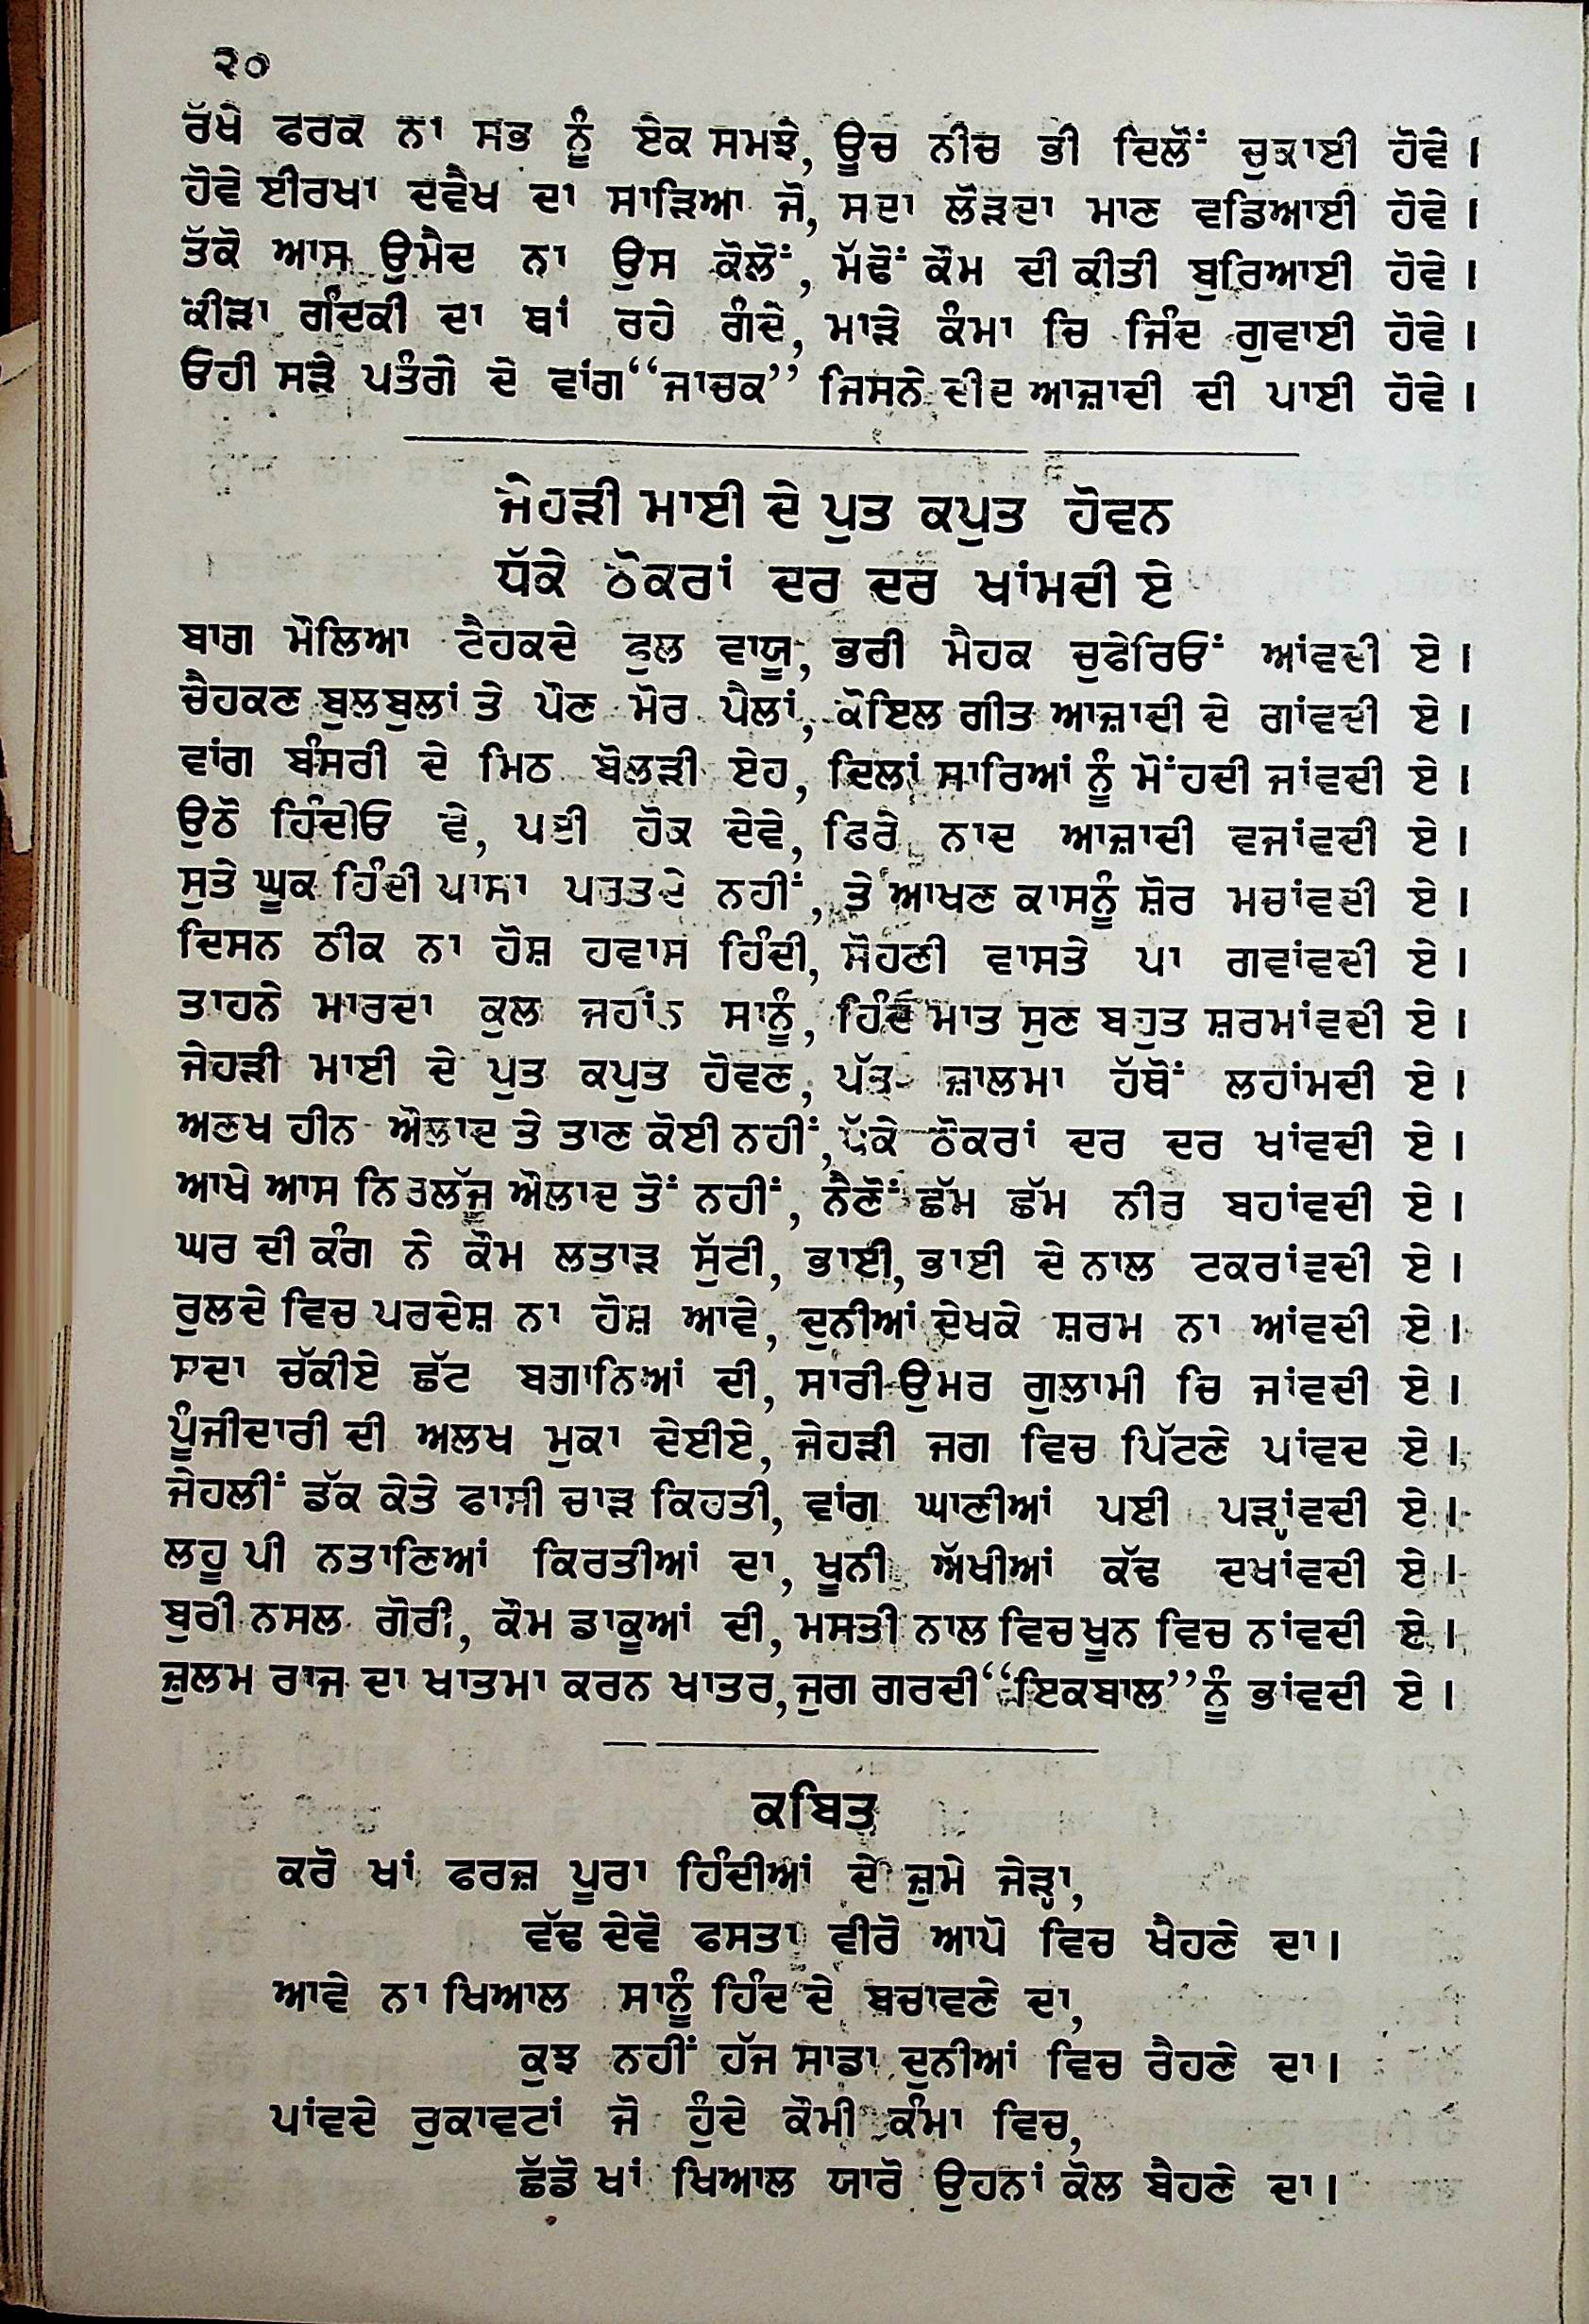 ੨੦
ਰੱਖੇ ਫਰਕ ਨਾ ਸਭ ਨੂੰ ਏਕ ਸਮਝੇ, ਊਚ ਨੀਚ ਭੀ ਦਿਲੋਂ ਚੁਕਾਈ ਹੋਵੇ ।
ਹੋਵੇ ਈਰਖਾ ਦਵੈਖ ਦਾ ਸਾੜਿਆ ਜੋ, ਸਦਾ ਲੋੜਦਾ ਮਾਣ ਵਡਿਆਈ ਹੋਵੇ ।
ਤੱਕੋ ਆਸ ਉਮੈਦ ਨਾ ਉਸ ਕੋਲੋਂ, ਮੱਢੋਂ ਕੌਮ ਦੀ ਕੀਤੀ ਬੁਰਿਆਈ ਹੋਵੇ ।
ਕੀੜਾ ਗੰਦਕੀ ਦਾ ਥਾਂ ਰਹੇ ਗੰਦੇ, ਮਾੜੇ ਕੰਮਾ ਚਿ ਜਿੰਦ ਗੁਵਾਈ ਹੋਵੇ ।
ਓਹੀ ਸੜੇ ਪਤੰਗੇ ਦੇ ਵਾਂਗ “ਜਾਚਕ” ਜਿਸਨੇ ਦੀਦ ਆਜ਼ਾਦੀ ਦੀ ਪਾਈ ਹੋਵੇ ।
ਜੇਹੜੀ ਮਾਈ ਦੇ ਪੁਤ ਕਪੁਤ ਹੋਵਨ
ਧੱਕੇ ਠੋਕਰਾਂ ਦਰ ਦਰ ਖਾਂਮਦੀ ਏ
ਬਾਗ ਮੌਲਿਆ ਟੈਹਕਦੇ ਫੁਲ ਵਾਯੂ, ਭਰੀ ਮੈਹਕ ਚੁਫੇਰਿਓਂ ਆਂਵਦੀ ਏ ।
ਚੈਹਕਣ ਬੁਲਬੁਲਾਂ ਤੇ ਪੌਣ ਮੋਰ ਪੈਲਾਂ, ਕੋਇਲ ਗੀਤ ਆਜ਼ਾਦੀ ਦੇ ਗਾਂਵਦੀ ਏ ।
ਵਾਂਗ ਬੰਸਰੀ ਦੇ ਮਿਠ ਬੋਲੜੀ ਏਹ, ਦਿਲਾਂ ਸਾਰਿਆਂ ਨੂੰ ਮੋਂਹਦੀ ਜਾਂਵਦੀ ਏ ।
ਉਠੋ ਹਿੰਦੀਓ ਵੇ, ਪਈ ਹੋਕ ਦੇਵੇ, ਫਿਰੇ ਨਾਦ ਆਜ਼ਾਦੀ ਵਜਾਂਵਦੀ ਏ ।
ਸੁਤੇ ਘੂਕ ਹਿੰਦੀ ਪਾਸਾ ਪਰਤਦੇ ਨਹੀਂ, ਤੇ ਆਖਣ ਕਾਸਨੂੰ ਸ਼ੋਰ ਮਚਾਂਵਦੀ ਏ ।
ਦਿਸਨ ਠੀਕ ਨਾ ਹੋਸ਼ ਹਵਾਸ ਹਿੰਦੀ, ਸੋਹਣੀ ਵਾਸਤੇ ਪਾ ਗਵਾਂਵਦੀ ਏ ।
ਤਾਹਨੇ ਮਾਰਦਾ ਕੁਲ ਜਹਾਂਨ ਸਾਨੂੰ, ਹਿੰਦ ਮਾਤ ਸੁਣ ਬਹੁਤ ਸ਼ਰਮਾਂਵਦੀ ਏ ।
ਜੇਹੜੀ ਮਾਈ ਦੇ ਪੁਤ ਕਪੁਤ ਹੋਵਣ, ਪੱਤ ਜ਼ਾਲਮਾ ਹੱਥੋਂ ਲਹਾਂਮਦੀ ਏ ।
ਅਣਖ ਹੀਨ ਔਲਾਦ ਤੇ ਤਾਣ ਕੋਈ ਨਹੀਂ, ਧੱਕੇ ਠੋਕਰਾਂ ਦਰ ਦਰ ਖਾਂਵਦੀ ਏ ।
ਆਖੇ ਆਸ ਨਿਰਲੱਜੂ ਔਲਾਦ ਤੋਂ ਨਹੀਂ, ਨੈਣੋਂ ਛੱਮ ਛੱਮ ਨੀਰ ਬਹਾਂਵਦੀ ਏ ।
ਘਰ ਦੀ ਕੰਗ ਨੇ ਕੌਮ ਲਤਾੜ ਸੁੱਟੀ, ਭਾਈ, ਭਾਈ ਦੇ ਨਾਲ ਟਕਰਾਂਵਦੀ ਏ ।
ਰੁਲਦੇ ਵਿਚ ਪਰਦੇਸ਼ ਨਾ ਹੋਸ਼ ਆਵੇ, ਦੁਨੀਆਂ ਦੇਖਕੇ ਸ਼ਰਮ ਨਾ ਆਂਵਦੀ ਏ ।
ਸਦਾ ਚੱਕੀਏ ਛੱਟ ਬਗਾਨਿਆਂ ਦੀ, ਸਾਰੀ ਉਮਰ ਗੁਲਾਮੀ ਚਿ ਜਾਂਵਦੀ ਏ ।
ਪੂੰਜੀਦਾਰੀ ਦੀ ਅਲਖ ਮੁਕਾ ਦੇਈਏ, ਜੇਹੜੀ ਜਗ ਵਿਚ ਪਿੱਟਣੇ ਪਾਂਵਦ ਏ ।
ਜੇਹਲੀਂ ਡੱਕ ਕੇਤੇ ਫਾਸੀ ਚਾੜ ਕਿਰਤੀ, ਵਾਂਗ ਘਾਣੀਆਂ ਪਈ ਪੜ੍ਹਾਂਵਦੀ ਏ ।
ਲਹੂ ਪੀ ਨਤਾਣਿਆਂ ਕਿਰਤੀਆਂ ਦਾ, ਖੂਨੀ ਅੱਖੀਆਂ ਕੱਢ ਦਖਾਂਵਦੀ ਏ ।
ਬੁਰੀ ਨਸਲ ਗੋਰੀ, ਕੌਮ ਡਾਕੂਆਂ ਦੀ, ਮਸਤੀ ਨਾਲ ਵਿਚ ਖੂਨ ਵਿਚ ਨਾਂਵਦੀ ਏ ।
ਜ਼ੁਲਮ ਰਾਜ ਦਾ ਖਾਤਮਾ ਕਰਨ ਖਾਤਰ, ਜੁਗ ਗਰਦੀ “ਇਕਬਾਲ” ਨੂੰ ਭਾਂਵਦੀ ਏ ।
ਕਬਿਤ
ਕਰੋ ਖਾਂ ਫਰਜ਼ ਪੂਰਾ ਹਿੰਦੀਆਂ ਦੇ ਜ਼ੁਮੇ ਜੇੜ੍ਹਾ,
ਵੱਢ ਦੇਵੋ ਫਸਤਾ ਵੀਰੋ ਆਪੋ ਵਿਚ ਖੈਹਣੇ ਦਾ ।
ਆਵੇ ਨਾ ਖਿਆਲ ਸਾਨੂੰ ਹਿੰਦ ਦੇ ਬਚਾਵਣੇ ਦਾ,
ਕੁਝ ਨਹੀਂ ਹੱਜ ਸਾਡਾ ਦੁਨੀਆਂ ਵਿਚ ਰੈਹਣੇ ਦਾ ।
ਪਾਂਵਦੇ ਰੁਕਾਵਟਾਂ ਜੋ ਹੁੰਦੇ ਕੌਮੀ ਕੰਮਾ ਵਿਚ,
ਛੱਡੋ ਖਾਂ ਖਿਆਲ ਯਾਰੋ ਉਹਨਾਂ ਕੋਲ ਬੈਹਣੇ ਦਾ ।